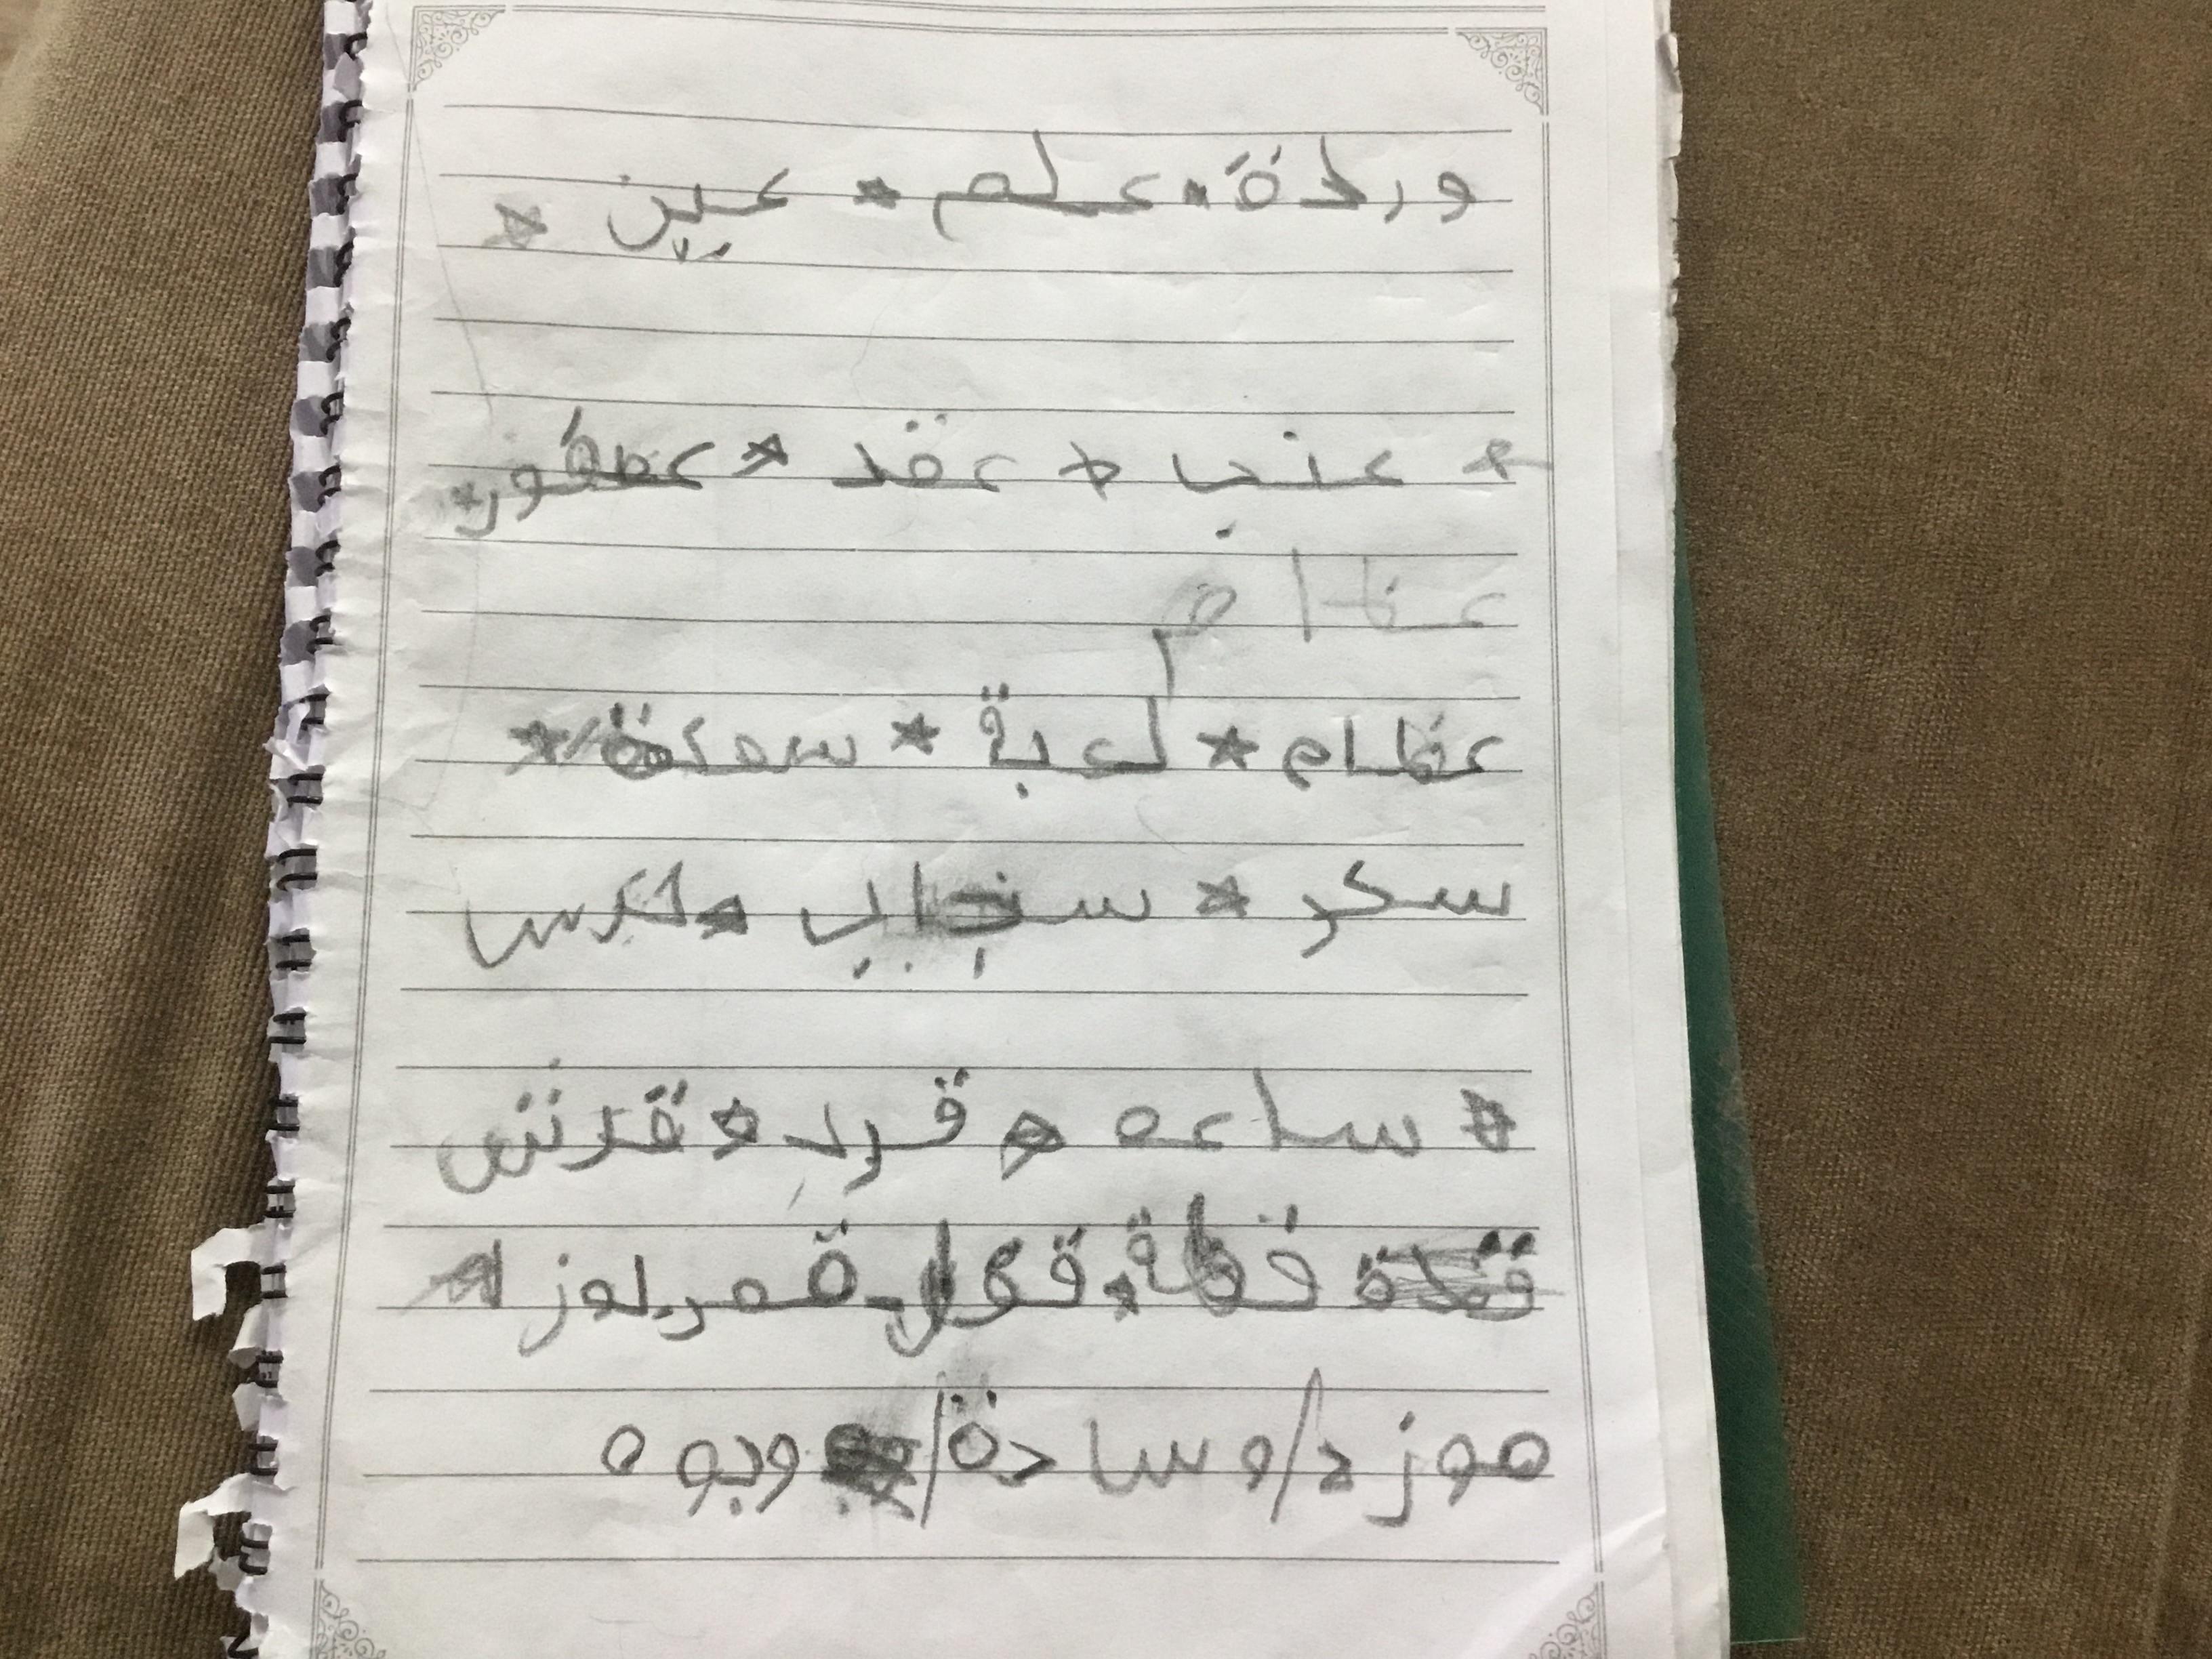 وردة * علم * عين *
* عنب * عقد * عصفور *
عظام
عظام * لعبة * سمكة *
سكر * سنجاب *
* ساعه * قرد * قرش
قطة * قمر لوز
موز / وسادة /